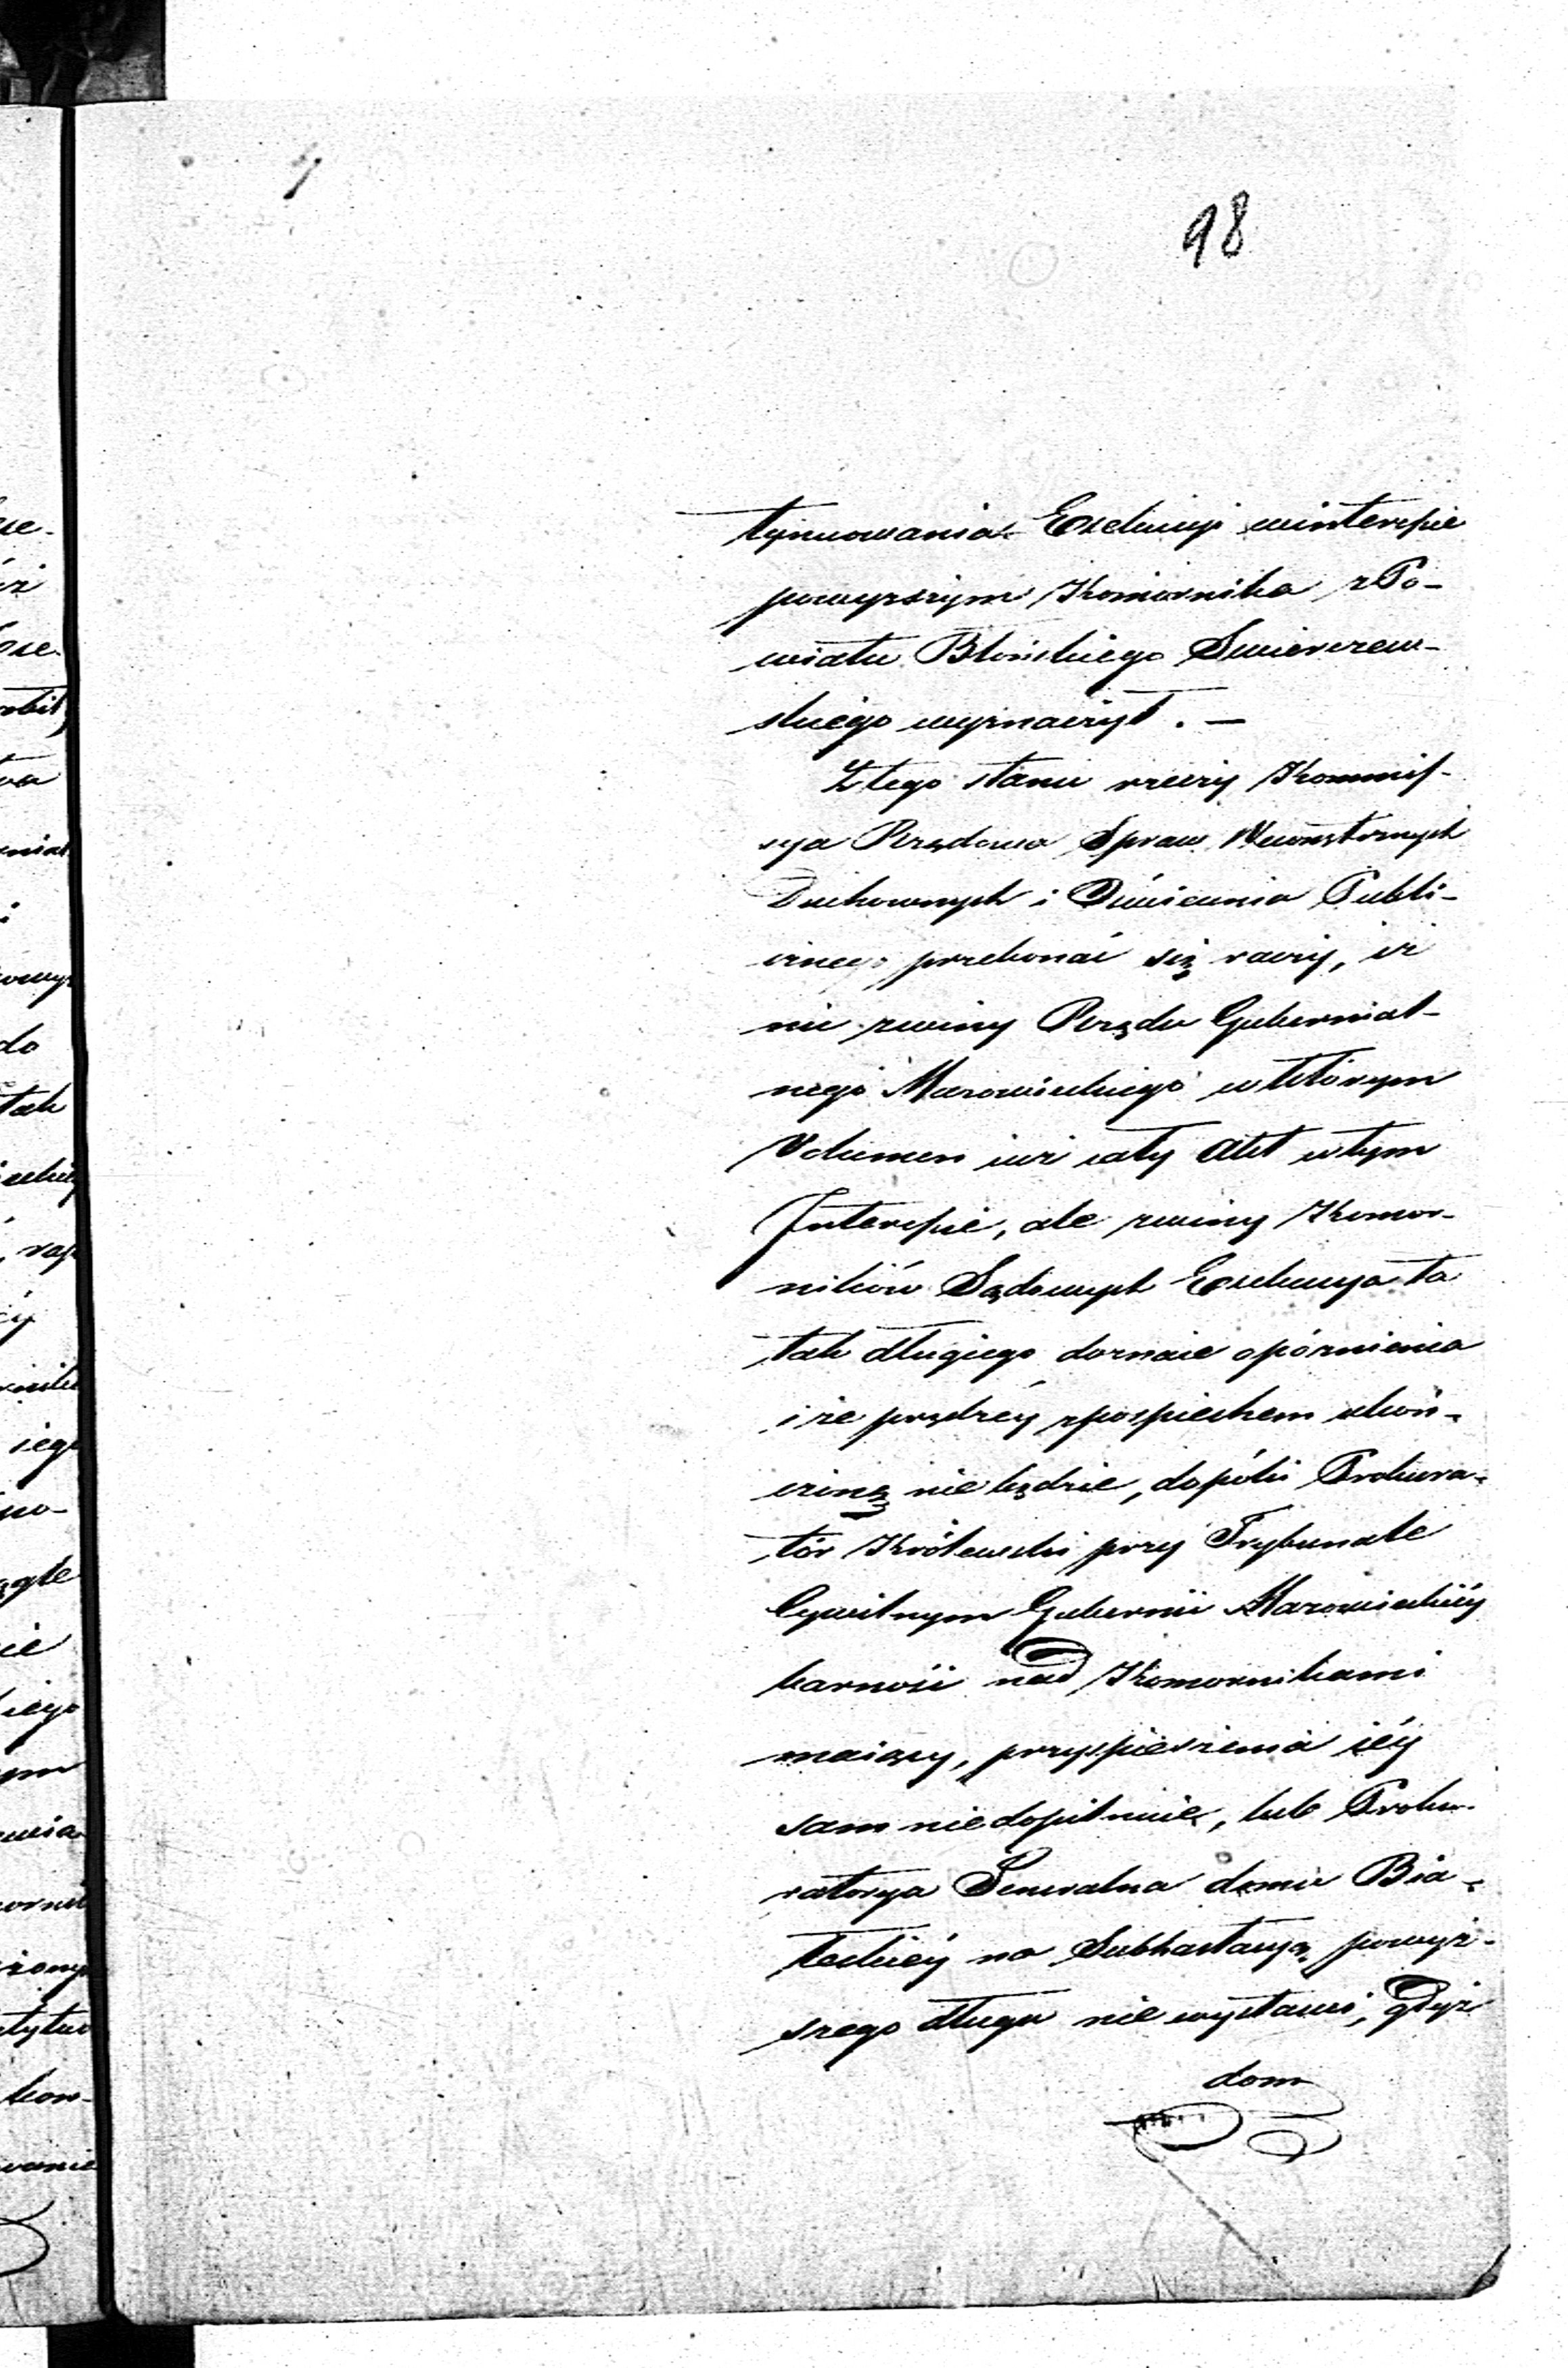 98
tynuowania Exekucyi w interessie
powyższym Komornika z Po-
wiatu Błońskiego Swierczew-
skiego wyznaczył. —
Z tego stanu rzeczy Kommis-
sya Rządowa Spraw Wewnętrznych
Duchownych i Oświecenia Publi-
cznego przekonać się raczy, iż
nie z winy Rządu Gubernial-
nego Mazowieckiego w którym
Volumen iuż cały Akt w tym
Interessie, ale z winy Komor-
ników Sądowych Exekucya ta
tak długiego doznaie opóźnienia
i że prędzéy z pospiechem ukoń-
czoną nie będzie, dopóki Prokura-
tor Królewski przy Trybunale
Cywilnym Gubernii Mazowieckiéy
karność nad Komornikami
maiący, przyspieszenia iéy
sam nie dopilnuie, lub Proku-
ratorya Generalna domu Bia-
łeckiéy na Subhastacyą powyż-
szego długu nie wystawi, gdyż
dom